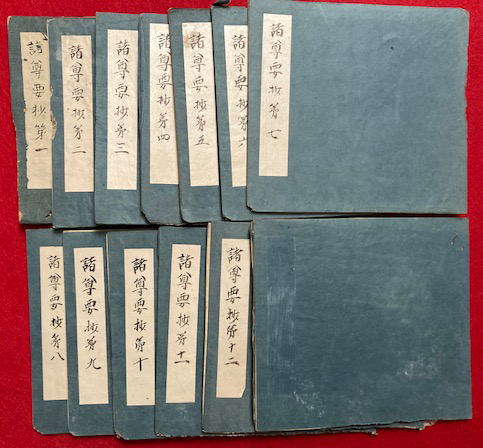 諸尊要抄第一
諸尊要抄第二
諸尊要抄第三
諸尊要抄第四
諸尊要抄第五
諸尊要抄第六
諸尊要抄第七
諸尊要抄第八
諸尊要抄第九
諸尊要抄第十
諸尊要抄第十一
諸尊要抄第十二